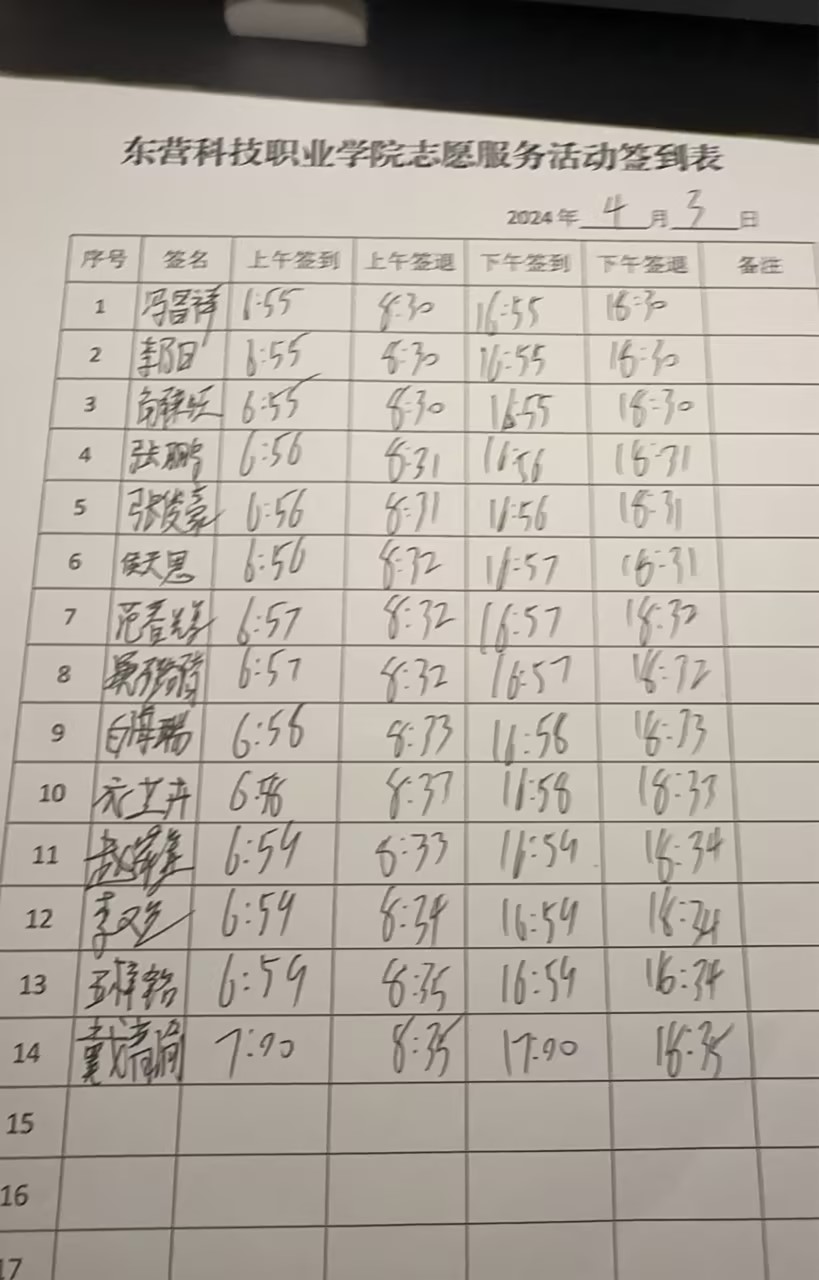 东营科技职业学院志愿服务活动签到表
2024年 4 月 3 日
序号 签名 上午签到 上午签退 下午签到 下午签退 备注
1 冯昌祥 6:55 8:30 16:55 18:30
2 6:55 8:30 16:55 18:30
3 6:55 8:30 16:55 18:30
4 张鹏 6:56 8:31 16:56 18:31
5 张俊豪 6:56 8:31 16:56 18:31
6 侯天恩 6:56 8:32 16:57 18:31
7 范春 6:57 8:32 16:57 18:32
8 6:57 8:32 16:57 18:32
9 白海瑞 6:58 8:33 16:58 18:33
10 8:33 16:58 18:33
11 6:59 8:33 16:59 18:34
12 李 6:59 8:34 16:59 18:34
13 6:59 8:35 16:59 18:34
14 戴 7:00 8:35 17:00 18:35
15
16
17